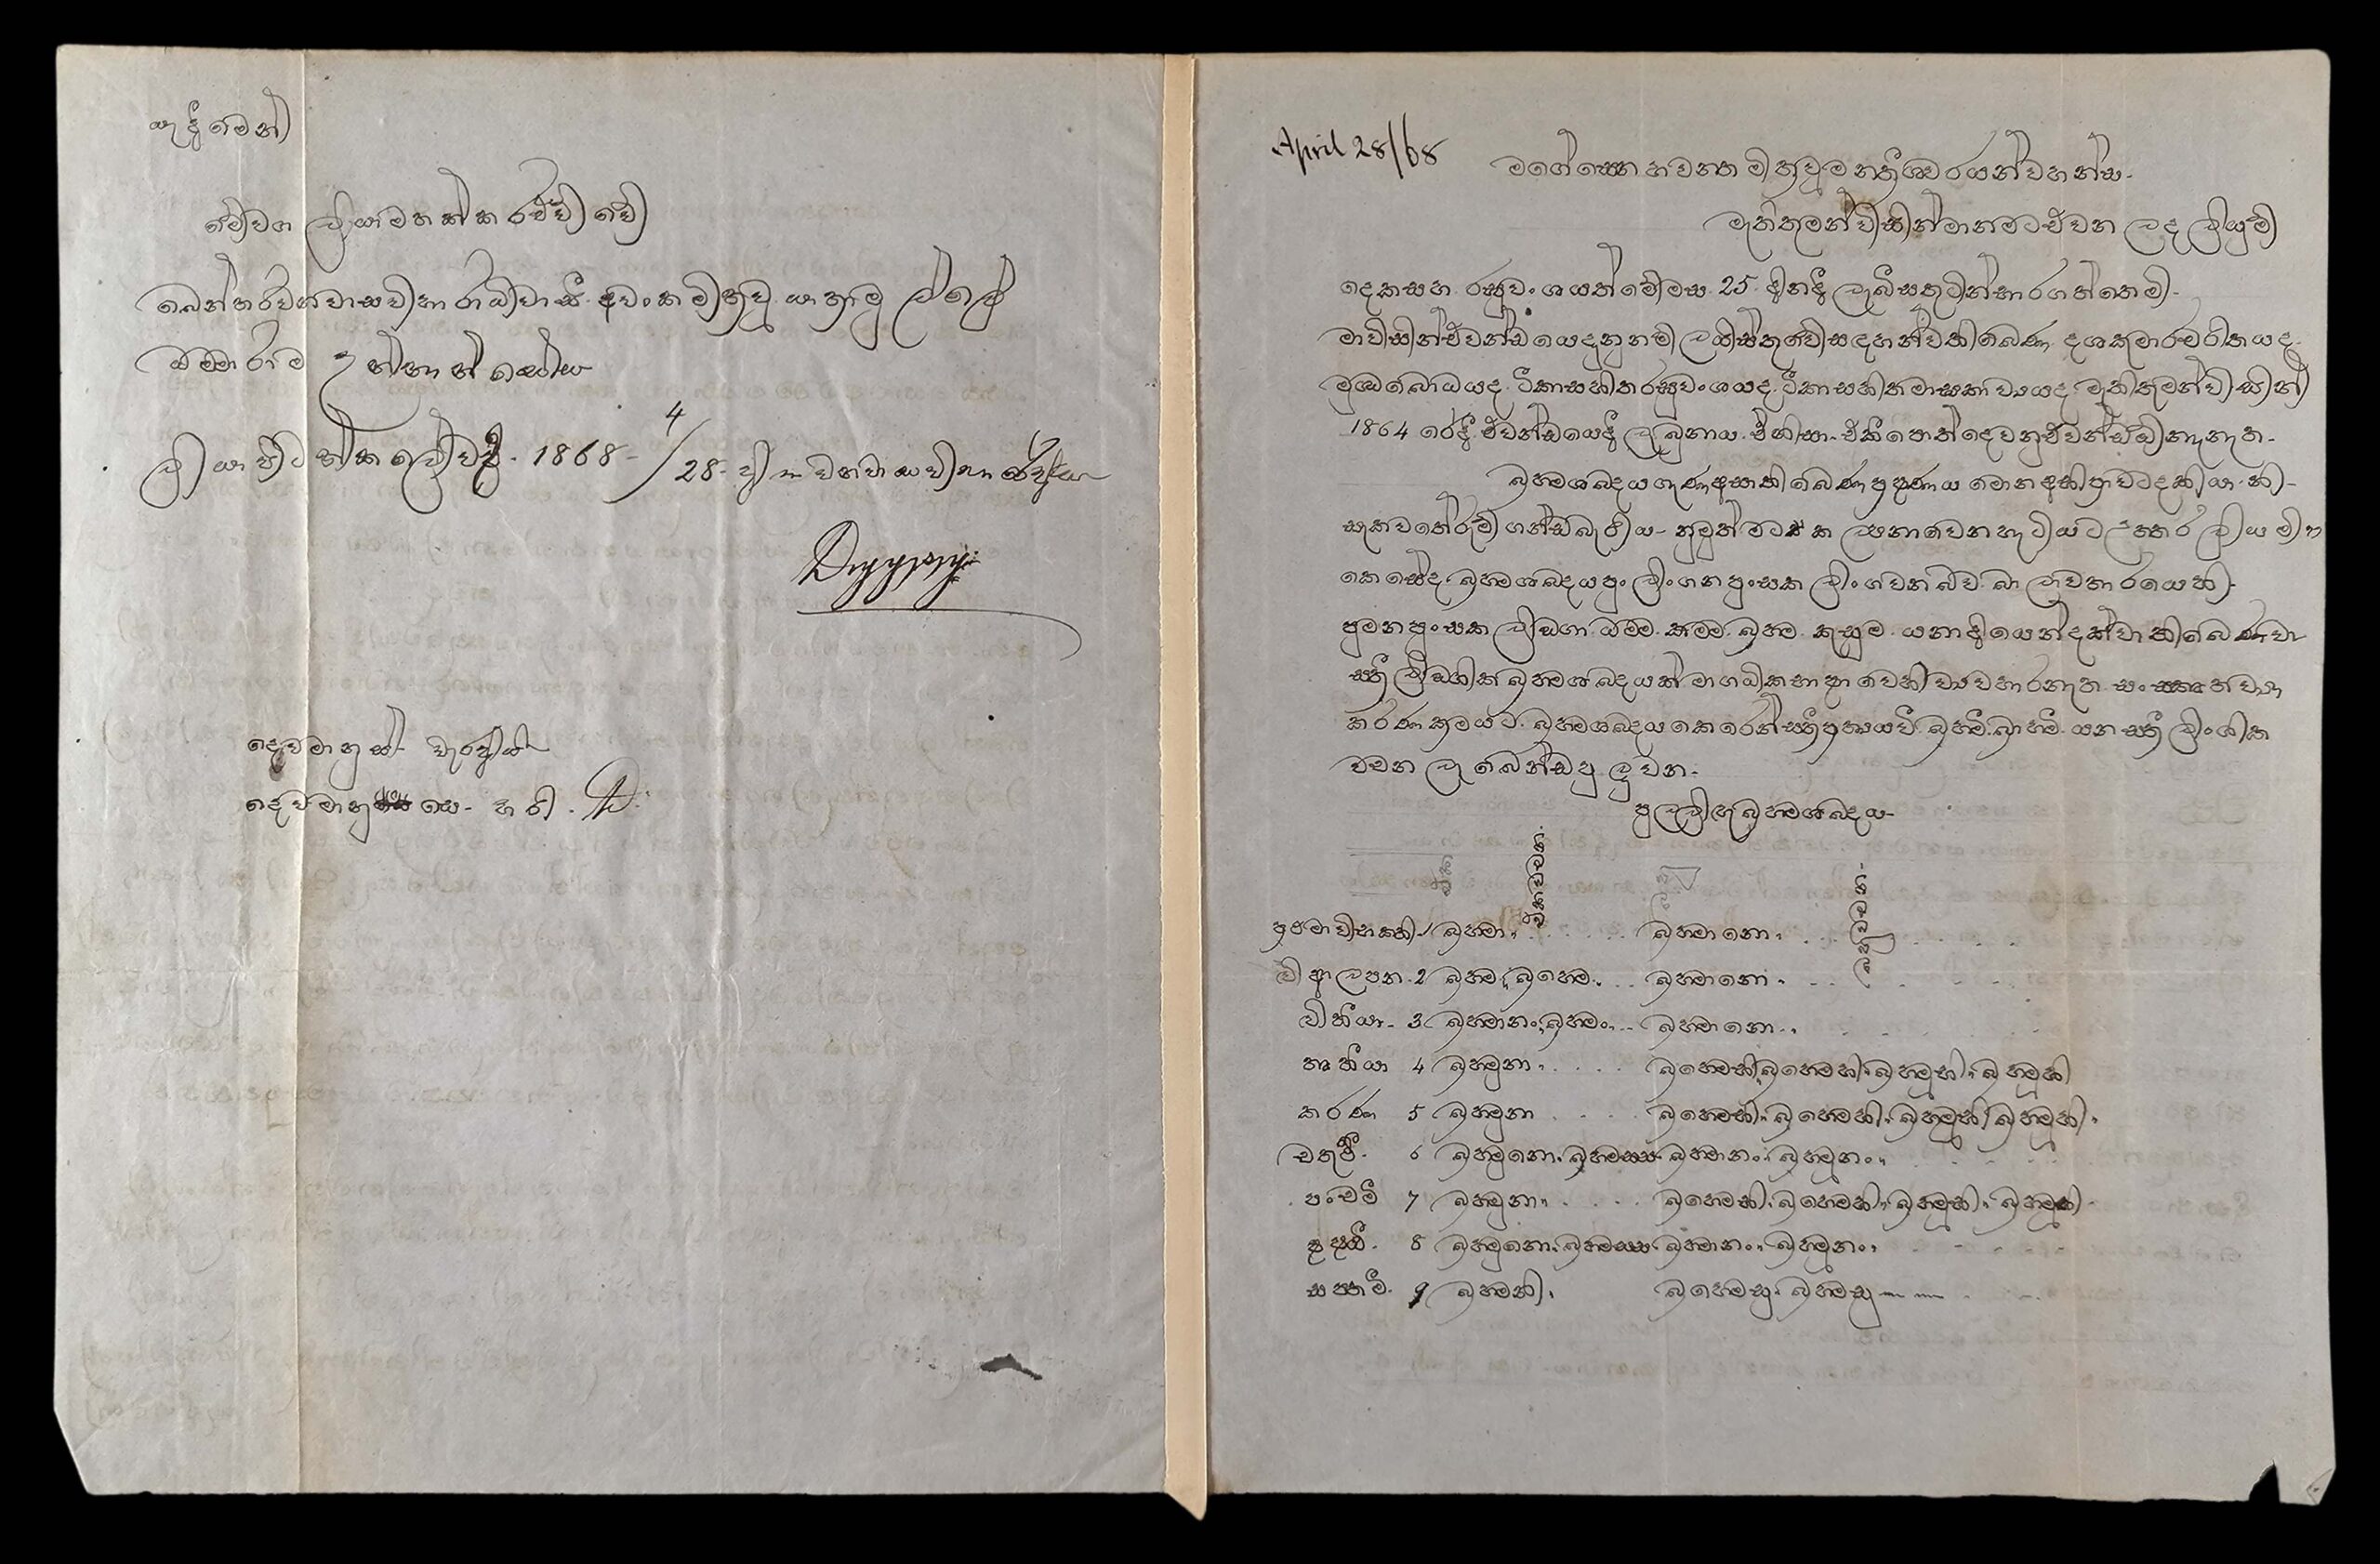 යැදීමෙන්
මේවග ලියාමහත්කරච්චිවේ
බෙන්තරවනවාසවිහාරාධිවාසී අවංක මිත්‍රවූ යාත්‍රාමුල්ලේ
ධම්මාරාම උන්නාන්සේය
ලියා පිටත්කලේවර්‍ෂ 1868-4/28- දින වනවාසවිහාරේදීය
දෙවමානුස්-
දෙවමානුසෙ- හරි.
April 28/68
මගේස්නෙහවන්ත මිත්‍රවූමන්ත්‍රීශ්වරයන්වහන්ස-
මැතිතුමන්විසින්මානමටඑවන ලද ලියුම්
දෙකසහ රඝුවංශයත්මේමස 25 දිනදී ලැබීසතුටින්භාරගත්තෙමි-
මාවිසින්එවන්ඩයෙදුනුනම් ලයිස්තුවේසඳහන්වතිබෙණ දශකුමාරචරිතයද
මුග්ධබොධයද ටීකාසහිතරඝුවංශයද ටීකාසහිතමාඝකාව්‍යයද මැතිතුමන්විසින්
1864 රේදී එවන්ඩයෙදී ලැබුනාය එනිසා එකීපොත්දෙවනුඑවන්ඩඕනෑනැත-
බ්‍රහ්මශබ්දයගැණඅසාතිබෙණප්‍රශ්ණය මොනඅභිප්‍රාවටදකියා නි-
සැකවතේරුම් ගන්ඩබැරිය- නුමුත් මට කල්පනාවෙනහැටියටඋත්තරලියමිහ
කෙසේද බ්‍රහ්මශබ්දයපුංලිංගනපුංසකලිංගවනබව බාලාවතාරයෙහි-
පුමනපුංසකලිඞ්ගා ධම්ම කම්ම බ්‍රහ්ම කුසුම යනාදියෙන්දක්වාතිබෙණවා
ස්ත්‍රීලිඞ්ගික බ්‍රහ්මශබ්දයක්මාගධිකභාෂාවෙහිව්‍යවහාරනැත සංස්කෘතව්‍යා
කරණක්‍රමයට බ්‍රහ්මශබ්දයකෙරෙන්ස්ත්‍රීප්‍රත්‍යයවී බ්‍රහ්මී බ්‍රාහ්මී යනස්ත්‍රීලිංගික
වචනලැබෙන්ඩපුලුවන-
පුල්ලිඟුබ්‍රහ්මශබ්දය-
එකවචන බහුවචන
ප්‍රථමාවිභක්ති 1 බ්‍රහ්මා බ්‍රහ්මානො
ආලපන 2 බ්‍රහ්ම බ්‍රහ්මෙ බ්‍රහ්මානො
ද්විතීයා- 3 බ්‍රහ්මානං බ්‍රහ්මං බ්‍රහ්මානො
තෘතීයා 4 බ්‍රහ්මුනා බ්‍රහ්මෙභි බ්‍රහ්මෙහි බ්‍රහ්මුභි බ්‍රහ්මුහි
කරණ 5 බ්‍රහ්මුනා බ්‍රහ්මෙභි බ්‍රහ්මෙහි බ්‍රහ්මුභි බ්‍රහ්මුහි
චතුර්‍ථී 6 බ්‍රහ්මුනො බ්‍රහ්මස්ස බ්‍රහ්මානං බ්‍රහ්මුනං
පංචමී 7 බ්‍රහ්මුනා බ්‍රහ්මෙභි බ්‍රහ්මෙහි බ්‍රහ්මුභි බ්‍රහ්මුහි
ෂෂ්ඨී 8 බ්‍රහ්මුනො බ්‍රහ්මස්ස බ්‍රහ්මානං බ්‍රහ්මුනං
සප්තමී 9 බ්‍රහ්මනි බ්‍රහ්මෙසු බ්‍රහ්මසු